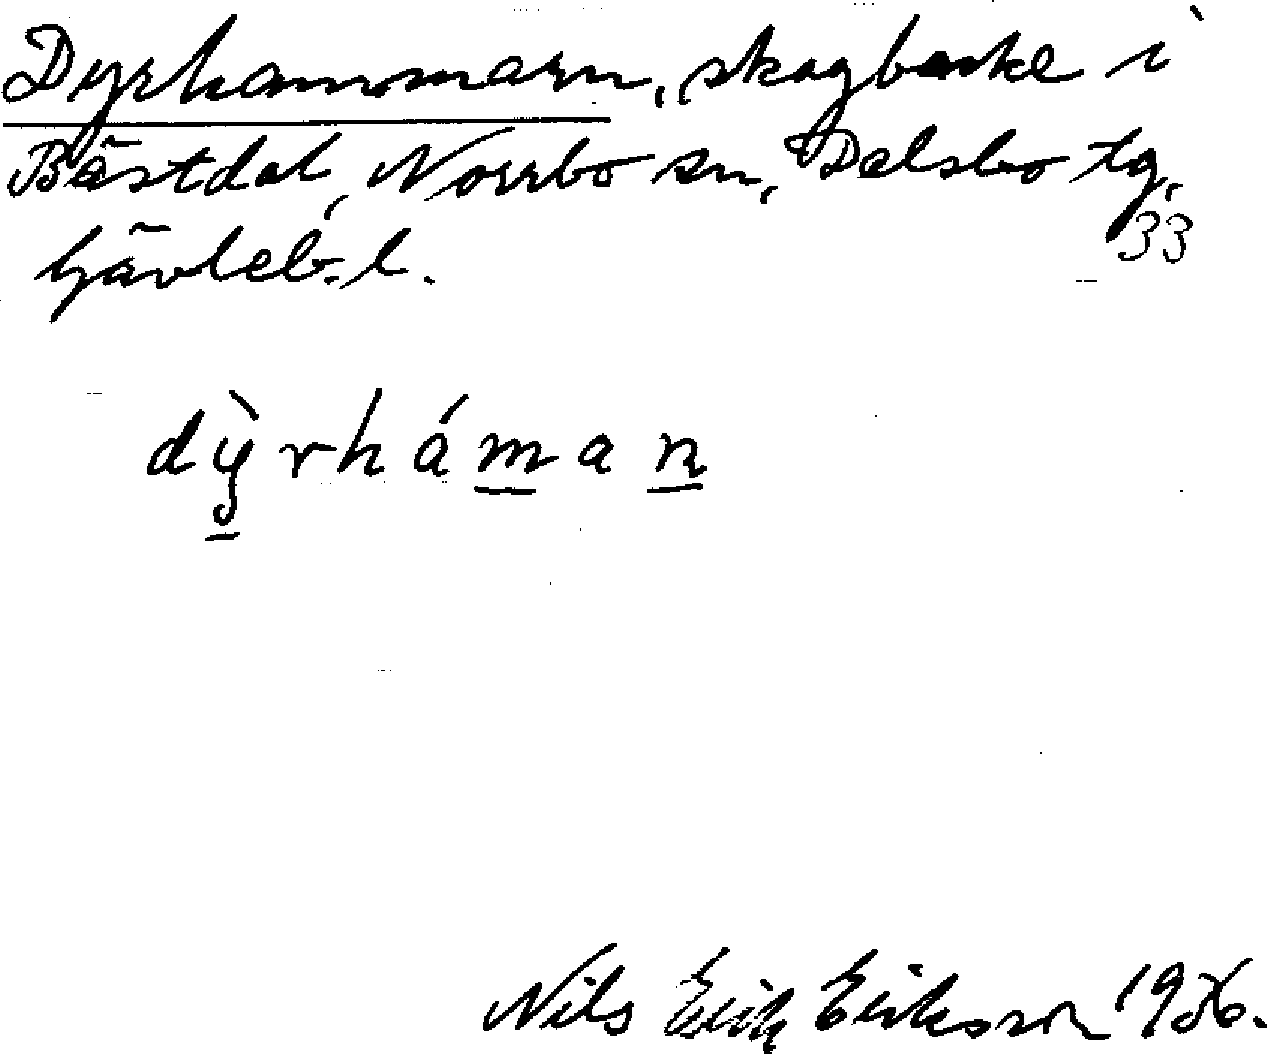 Dyrhammarn, skogbacke i
Bästdal, Norrbo sn, Delsbo tg,
Gävleb. l.
33
dỳ̱rháma̱ṉ
Nils Erik Eriksson 1936.